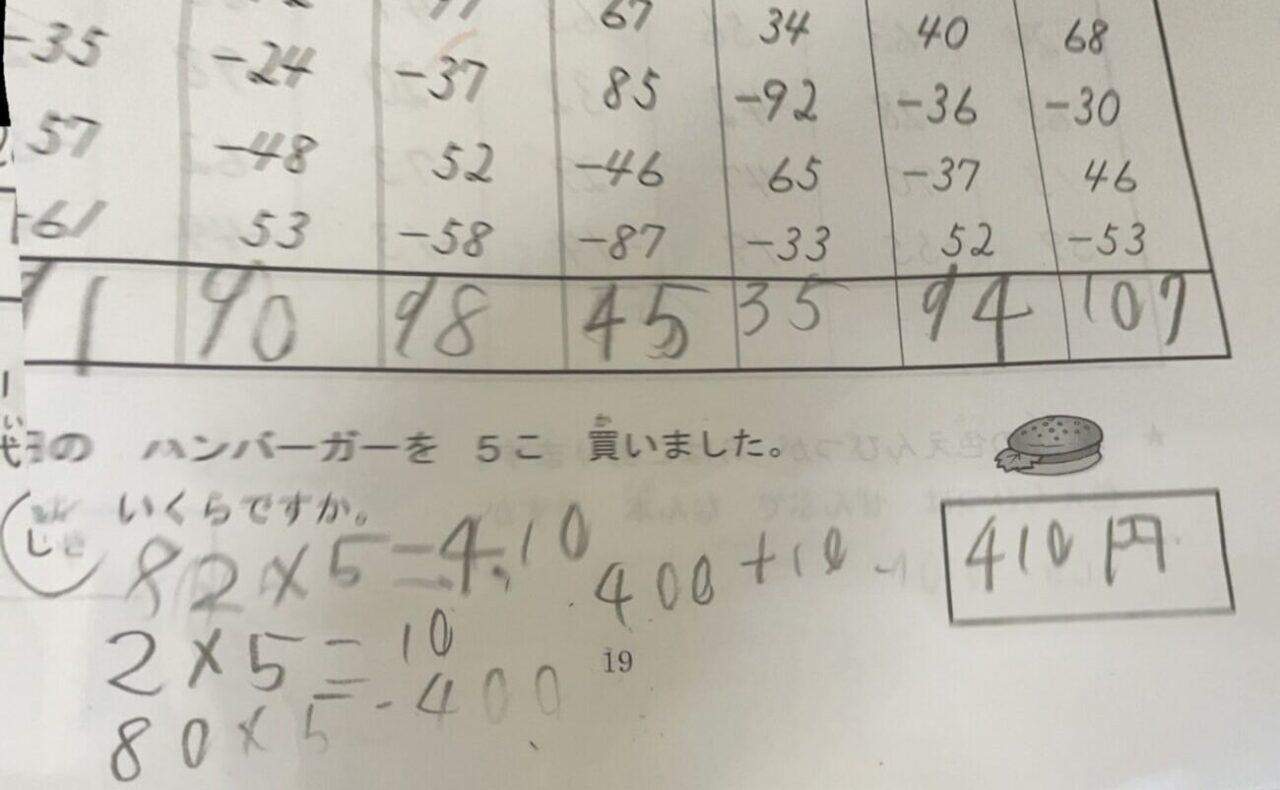 67 34 40 68
-35 -24 -37 85 -92 -36 -30
57 -48 52 -46 65 -37 46
-61 53 -58 -87 -33 52 -53
91 90 98 45 35 94 107
の ハンバーガーを 5こ 買いました。
いくらですか。
82×5=410
400+10
410円
2×5=10
80×5=400
19